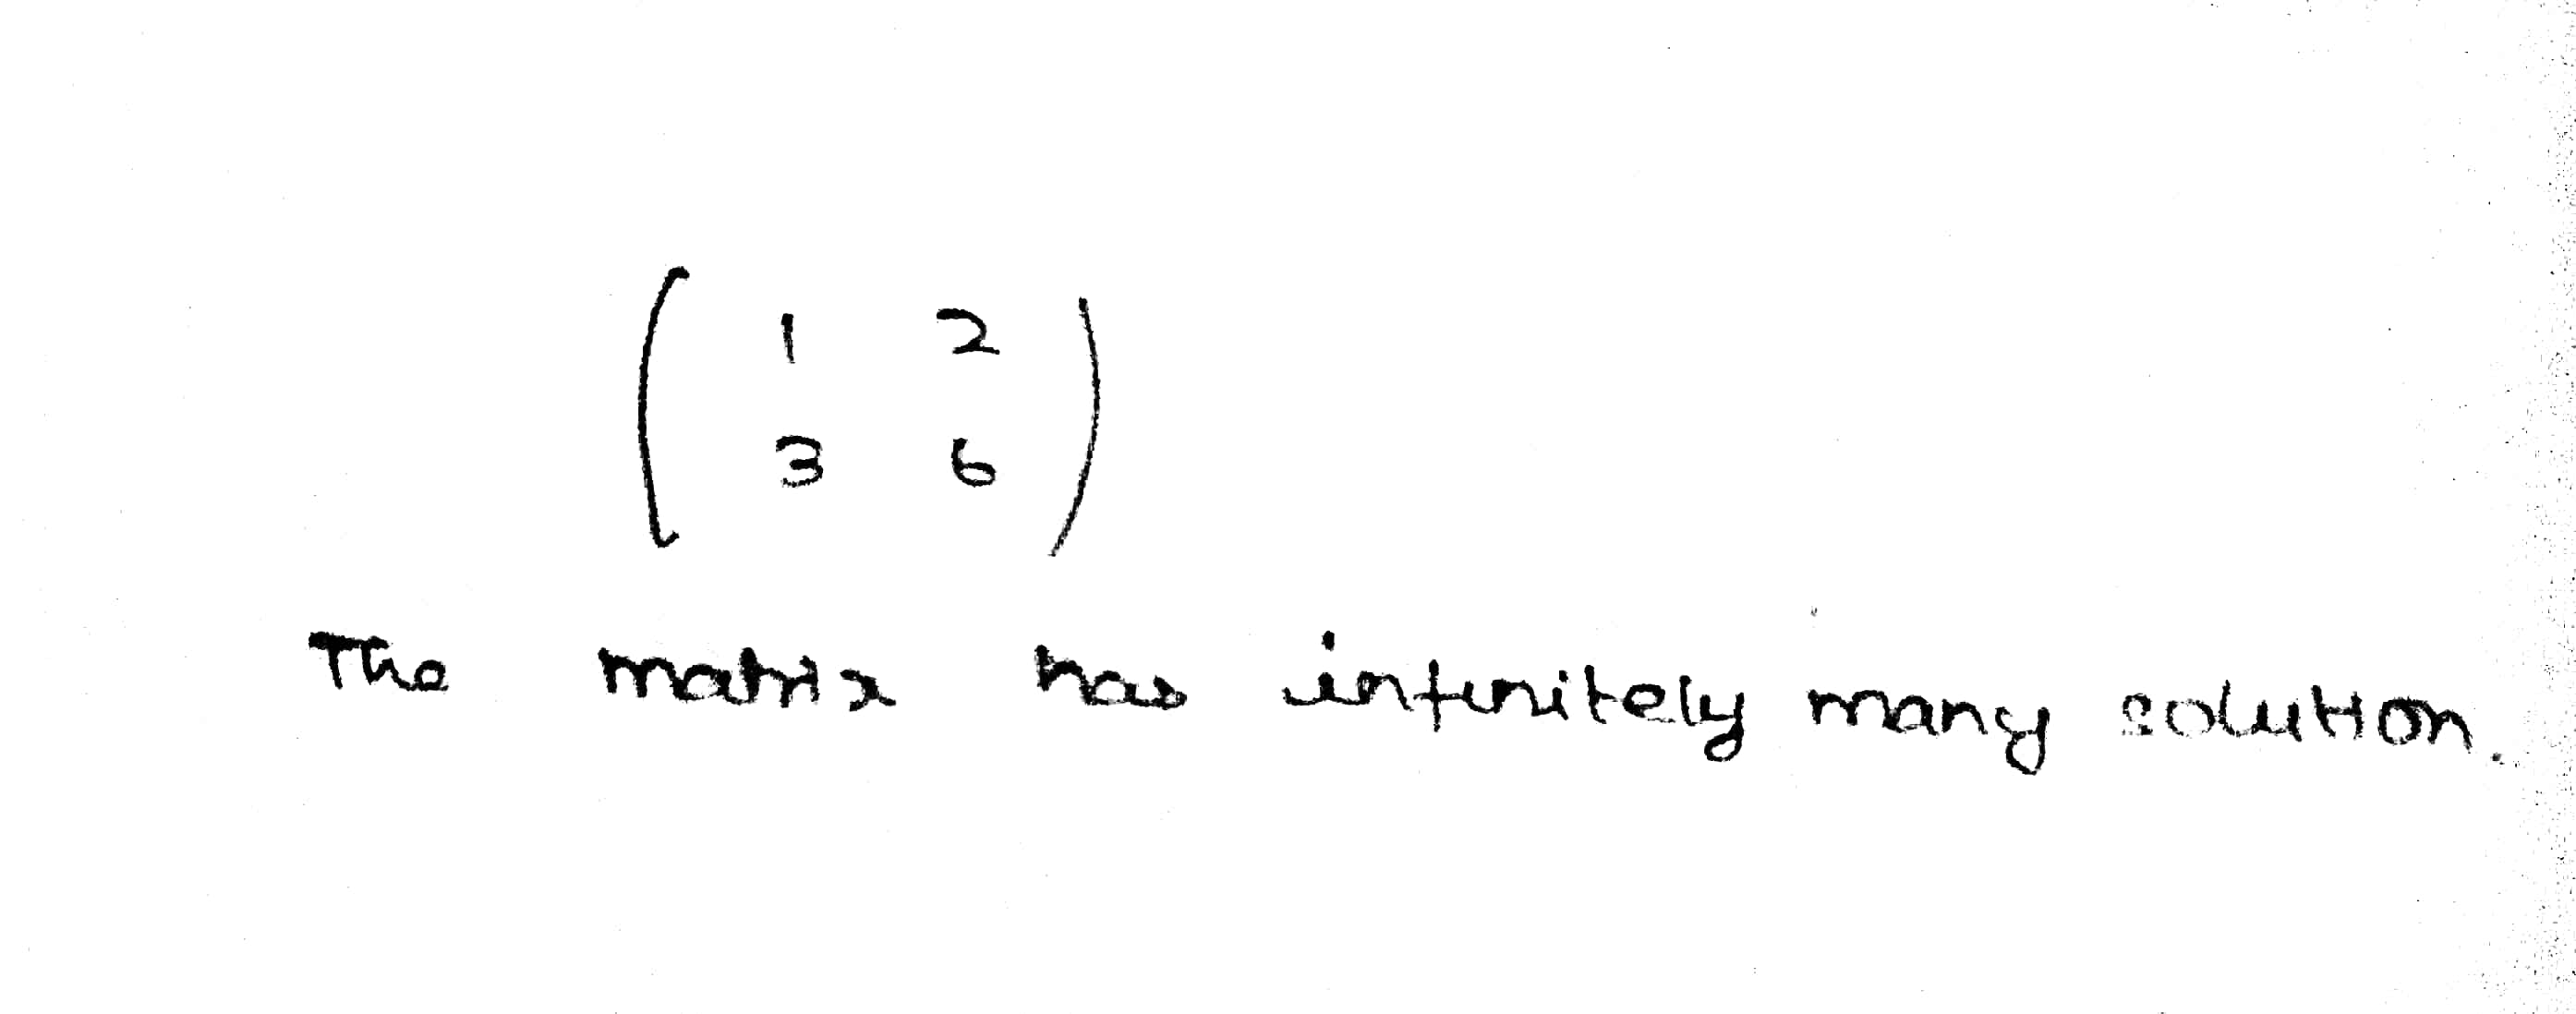 1 2
3 6
The matrix has infinitely many solution.